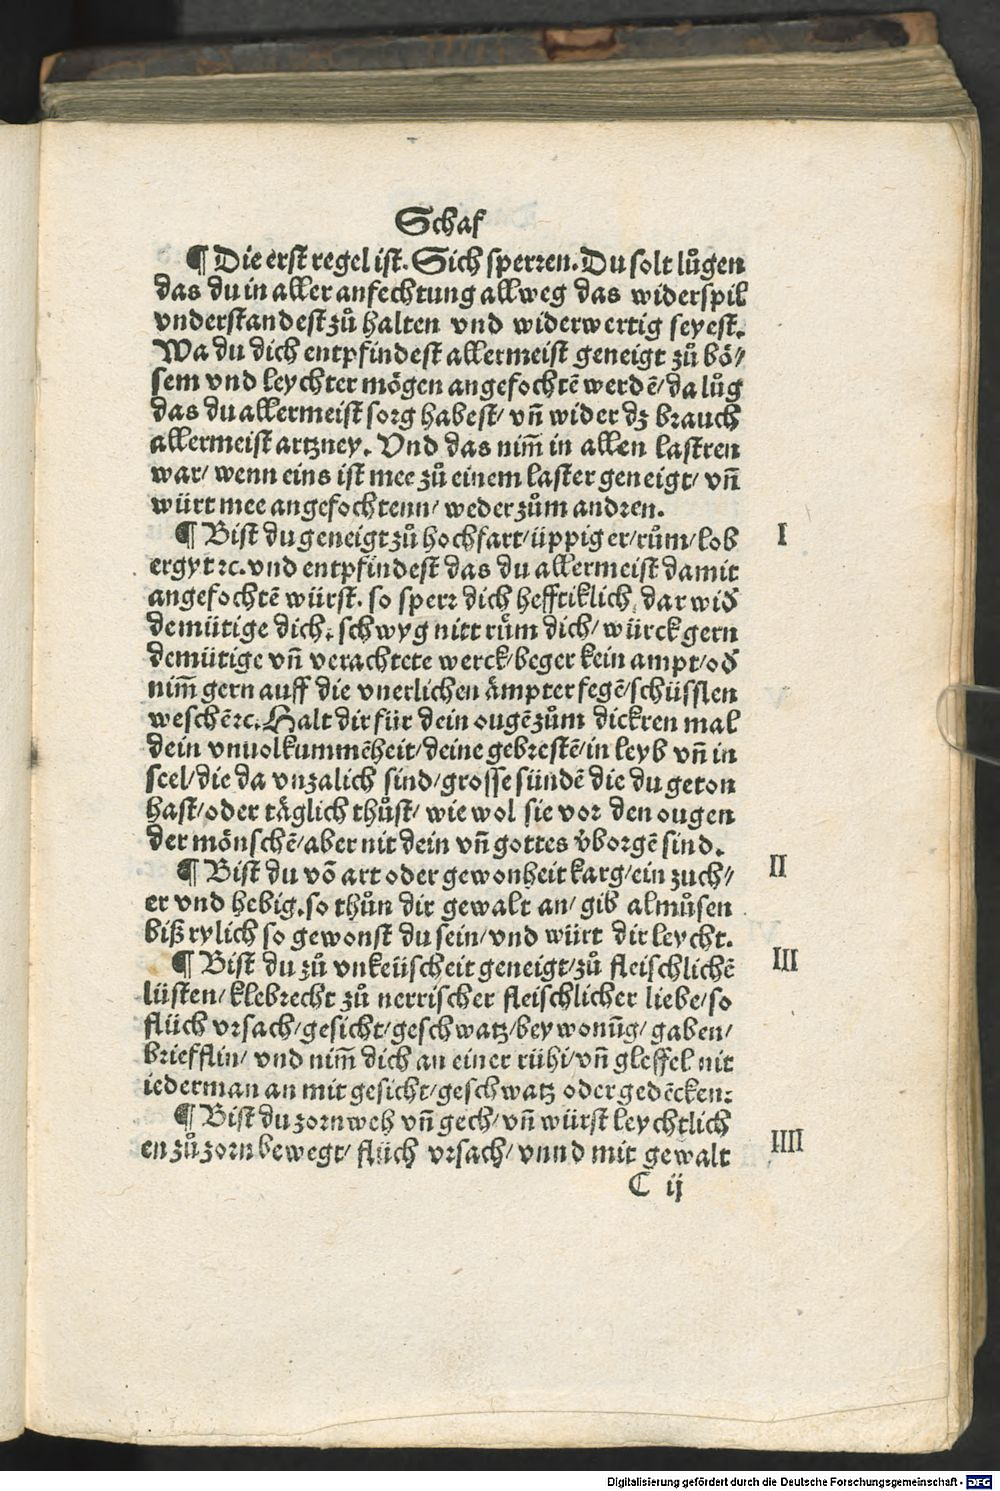 Schaf
¶ Die erst regel ist. Sich sperren. Du solt lůgen
das du in aller anfechtung allweg das widerspil
vnderstandest zů halten vnd widerwertig seyest.
Wa du dich entpfindest allermeist geneigt zů bö⸗
sem vnd leychter mögen angefochtē werdē/ da lůg
das du allermeist sorg habest/ vn̄ wider dz brauch
allermeist artzney. Vnd das nim̄ in allen lastren
war/ wenn eins ist mee zů einem laster geneigt/ vn̄
würt mee angefochtenn/ weder zům andren.
¶ Bist du geneigt zů hochfart/ üppig er/ rům/ lob
I
ergyt ꝛc. vnd entpfindest das du allermeist damit
angefochtē würst. so sperr dich hefftiklich dar wid̕
demütige dich, schwyg nitt rům dich/ würck gern
demütige vn̄ verachtete werck/ beger kein ampt/ od̕
nim̄ gern auff die vnerlichen ämpter fegē/ schüsslen
weschē ꝛc. Halt dir für dein ougē zům dickren mal
dein vnuolkummēheit/ deine gebrestē/ in leyb vn̄ in
seel/ die da vnzalich sind/ grosse sündē die du geton
hast/ oder täglich thůst/ wie wol sie vor den ougen
der mönschē/ aber nit dein vn̄ gottes v̕borgē sind.
¶ Bist du vō art oder gewonheit karg/ ein zuch⸗
II
er vnd hebig. so thůn dir gewalt an/ gib almůsen
biß rylich so gewonst du sein/ vnd würt dir leycht.
¶ Bist du zů vnkeüscheit geneigt/ zů fleischlichē
III
lüsten/ klebrecht zů nerrischer fleischlicher liebe/ so
flüch vrsach/ gesicht/ geschwatz/ bey wonūg/ gaben/
briefflin/ vnd nim̄ dich an einer rühi/ vn̄ gleffel nit
iederman an mit gesicht/ geschwatz oder gedēcken:
¶ Bist du zornweh vn̄ gech/ vn̄ würst leychtlich
IIII
en zů zorn bewegt/ flüch vrsach/ vnnd mit gewalt
C ij
Digitalisierung gefördert durch die Deutsche Forschungsgemeinschaft - DFG